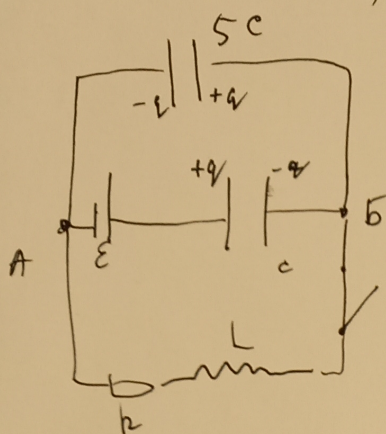 5C
-q +q
+q -q
A ε c Б
L
R